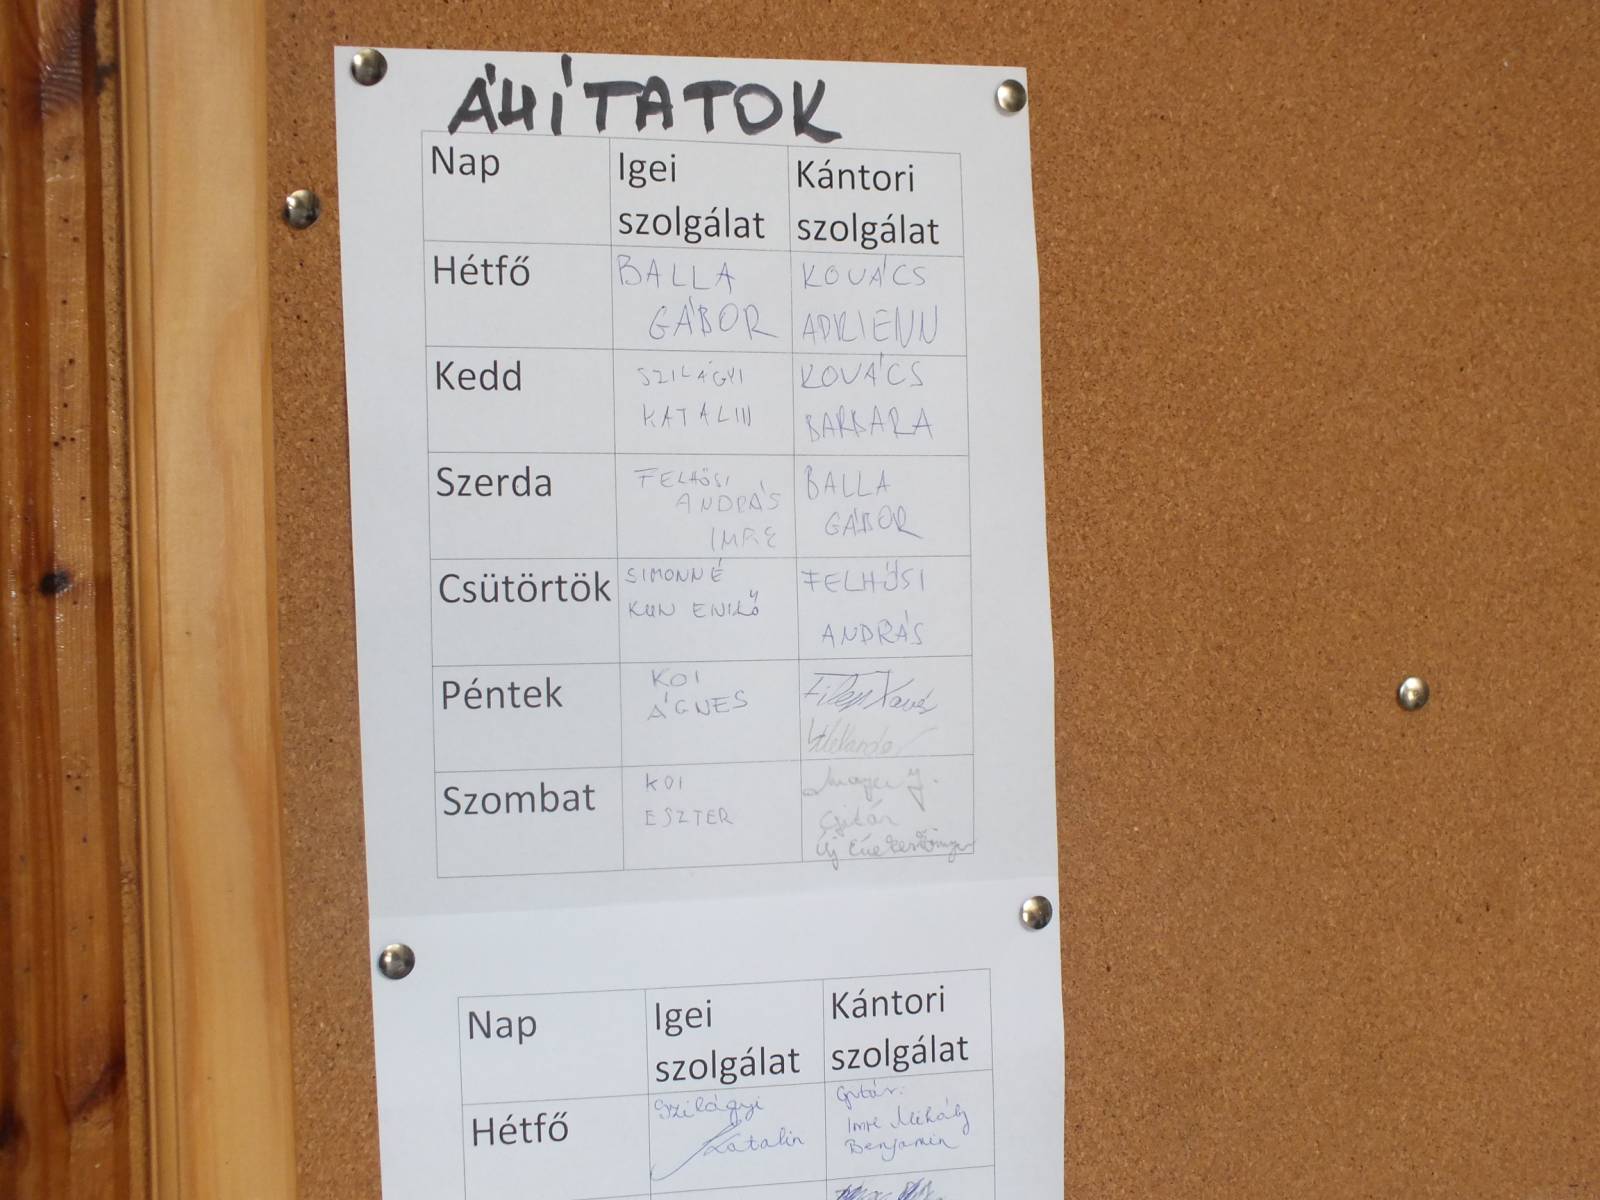 ÁHÍTATOK
Nap Igei szolgálat Kántori szolgálat
Hétfő BALLA GÁBOR KOVÁCS ADRIENN
Kedd SZILÁGYI KATALIN KOVÁCS BARBARA
Szerda FELHŐSI ANDRÁS IMRE BALLA GÁBOR
Csütörtök SIMONNÉ KUN ENIKŐ FELHŐSI ANDRÁS
Péntek KOI ÁGNES
Szombat KOI ESZTER
Új Énekeskönyv
Nap Igei szolgálat Kántori szolgálat
Hétfő Szilágyi Katalin Gitár: Imre Mihály Benjamin